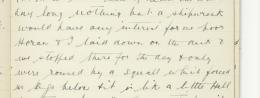 long nothing but a shipwreck
would have any interest for us poor
Horan & I laid down on the deck &
we stopped there for the day & only
were roused by a squall which forced
us to go below it is like a little Hell